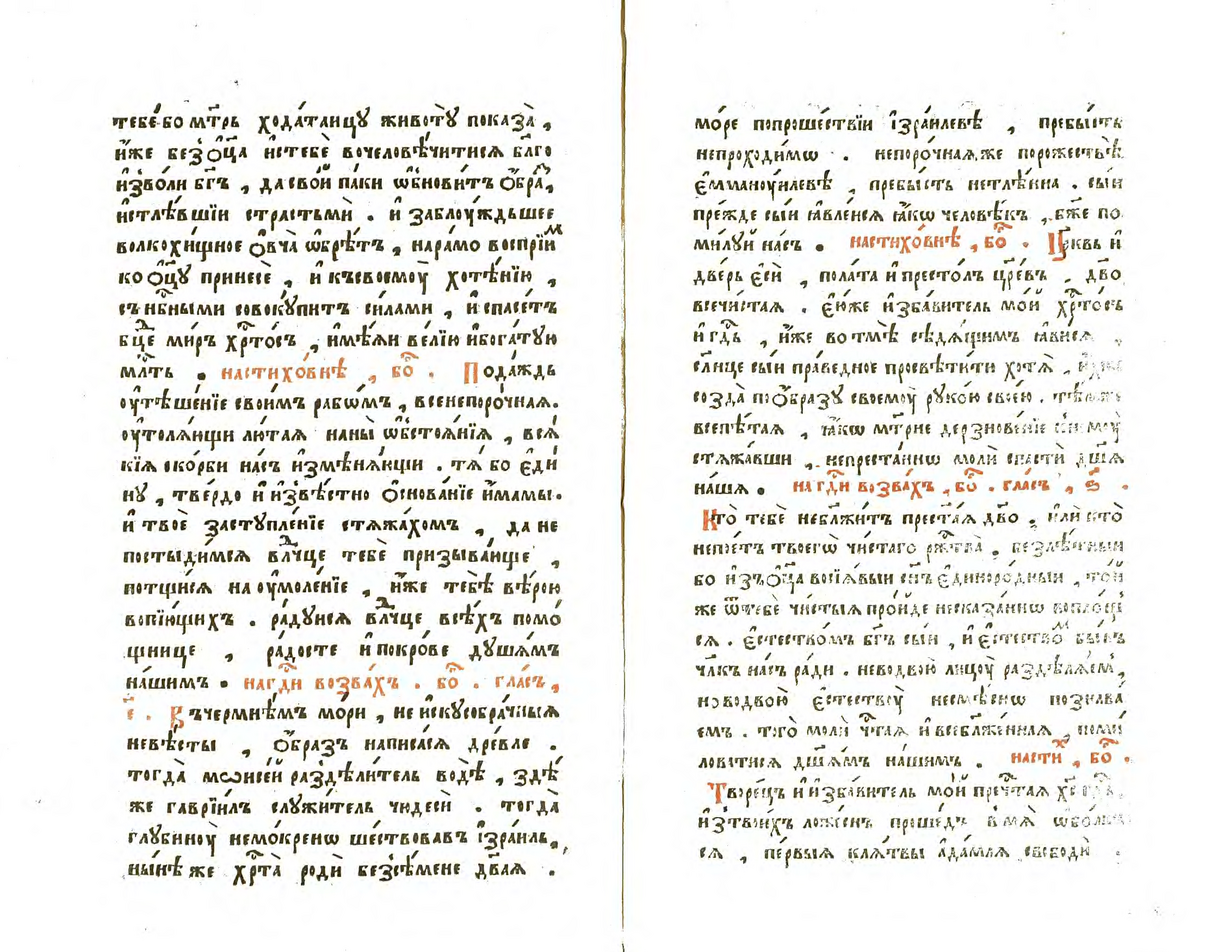 тебе́ бо мт҃рь хода́таицу животꙋ̀ показа̀ ,
и҆́же беꙁ ѻ҆ц҃а и҆стебѐ вочеловѣ́читисѧ бл҃го
и҆ꙁво́ли бг҃ъ , да сво́й па́ки ѡ҆бнови́тъ ѻ҆́браⷥ,
и҆стлѣ́вшїи страстьмѝ . и҆ ꙁаблоу́ждьшее
волкохи́щное ѻ҆вча̀ ѡ҆брѣ́тъ , нара́мо воспрїи́мⷨ
ко ѻ҆ц҃ꙋ принесѐ , и҆ къ своемоу̀ хотѣ́нїю ,
съ нб҃ными совокꙋпи́тъ си́лами , и҆ спасе́тъ
бц҃е ми́ръ хрⷭ҇то́съ , и҆мѣ́ѧи ве́лїю и҆ бога́тꙋю
млⷭ҇ть . настихо́внѣ , бо҃ . Пода́ждь
оу҆тѣше́нїе свои́мъ рабѡ́мъ , всенепоро́чнаѧ.
оу҆толѧ́ющи лю́таѧ на ны̀ ѡ҆бстоѧ́нїѧ , всѧ́
кїѧ ско́рби на́съ и҆ꙁмѣнѧ́ющи . тѧ́ бо є҆ди́
нꙋ , тве́рдо и҆ и҆ꙁвѣ́стно ѻ҆снова́нїе и҆́мамы.
и҆ твоѐ застꙋпле́нїе стѧжа́хомъ , да не
постыди́мсѧ влⷣчце тебѐ приꙁыва́юще ,
потщи́сѧ на оу҆моле́нїе , и҆́же тебѣ̀ вѣ́рою
вопїю́щихъ . ра́дꙋисѧ влⷣчце всѣ́хъ помо́
щнице , ра́досте и҆ покро́ве дꙋша́мъ
на́шимъ . на гдⷭ҇и воꙁва́хъ . бо҃ . гла́съ ,
є҃ . Въ чермнѣ́мъ мо́ри , не и҆скꙋсобра́чныѧ
невѣ́сты , ѻ҆́браꙁъ написа́сѧ дре́вле .
тогда̀ мѡѷсе́й раꙁдѣли́тель водѣ̀ , ꙁдѣ́
же гаврїи́лъ слꙋжи́тель чюдесѝ . тогда̀
глꙋбиноу̀ немо́кренѡ ше́ствовавъ і҆ꙁра́иль,
ны́нѣ же хрⷭ҇та̀ родѝ беꙁсѣ́мене дв҃аѧ .
мо́ре по проше́ствїи і҆ꙁра́илевѣ , пребы́сть
непроходи́мѡ . непоро́чнаѧ же по рожествѣ̀
є҆мманоу́илевѣ , пребы́сть нетлѣ́нна . сы́и
пре́жде сы́и ꙗ҆вле́исѧ ꙗ҆́кѡ человѣ́къ , бж҃е по
ми́лꙋй на́съ . настихо́внѣ , бо҃ . Цр҃квь и҆
две́рь є҆сѝ , пола́та и҆ престо́лъ цр҃е́въ . дв҃о
всечи́стаѧ . є҆́юже и҆ꙁба́витель мо́й хрⷭ҇то́съ
и҆ гдⷭ҇ь , и҆́же во тмѣ̀ сѣдѧ́щимъ ꙗ҆ви́сѧ ,
сл҃нце сы́и пра́ведное просвѣти́ти хотѧ̀ , и҆́хже
соꙁда̀ по ѻ҆́браꙁꙋ своемоу̀ рꙋко́ю свое́ю . тѣ́мже
всепѣ́таѧ , ꙗ҆́кѡ мт҃рне дерꙁнове́нїе к немоу̀
стѧжа́вши , непреста́ннѡ молѝ спастѝ дш҃а
на́шѧ . на гдⷭ҇и воꙁва́хъ , бо҃ . гла́съ , ѕ҃ .
Кто̀ тебѐ не бл҃жи́тъ прест҃а́ѧ дв҃о , и҆лѝ кто̀
не пое́тъ твоегѡ̀ чи́стаго ржⷭ҇тва̀ . беꙁлѣ́тныи
бо и҆ꙁъ ѻ҆ц҃а восїѧ́выи сн҃ъ є҆диноро́дныи , то́й
же ѿ тебѐ чи́стыѧ про́йде несказа́ннѡ вопло́щ
сѧ . є҆стество́мъ бг҃ъ сы́и , и҆ є҆стество́ⷨ бы́въ
чл҃къ на́съ ра́ди . не в двою̀ лицоу̀ раꙁдѣлѧ́емь ,
но в двою̀ є҆стествоу̀ несмѣ́снѡ поꙁнава́
емъ . того̀ молѝ чⷭ҇таѧ и҆ всебл҃же́ннаѧ , поми́
ловатисѧ дш҃а́мъ на́шимъ . настиⷯ , бо҃ .
Творе́цъ и҆ и҆ꙁба́витель мо́й пречⷭ҇таѧ хрⷭ҇то́съ гдⷭ҇ь,
и҆ꙁ твои́хъ ложе́снъ проше́дъ в мѧ̀ ѡ҆болкі́й
сѧ , пе́рвыѧ клѧ́твы а҆да́млѧ свободѝ .